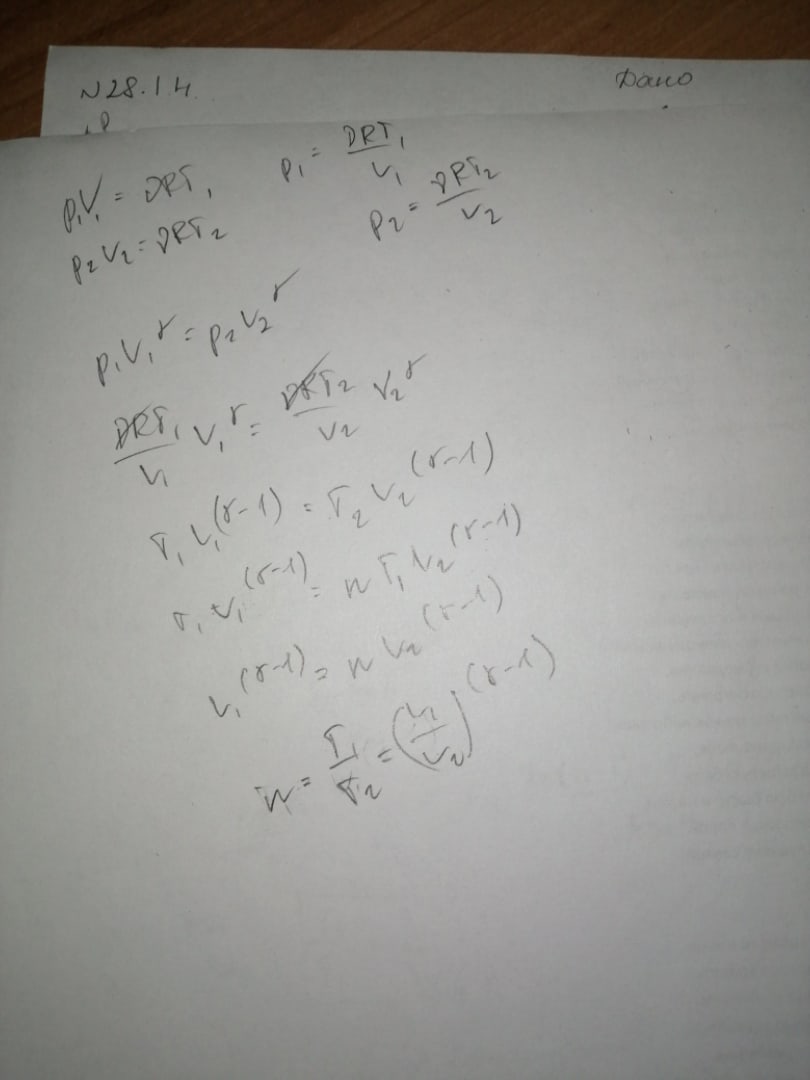 N28.14. Дано
p
p₁V₁ = νRT₁ p₁ = νRT₁/V₁
p₂V₂ = νRT₂ p₂ = νRT₂/V₂
p₁V₁^γ = p₂V₂^γ
νRT₁/V₁ V₁^γ = νRT₂/V₂ V₂^γ
T₁V₁^(γ-1) = T₂V₂^(γ-1)
T₁V₁^(γ-1) = nT₁V₂^(γ-1)
V₁^(γ-1) = nV₂^(γ-1)
n = T₁/T₂ = (V₁/V₂)^(γ-1)